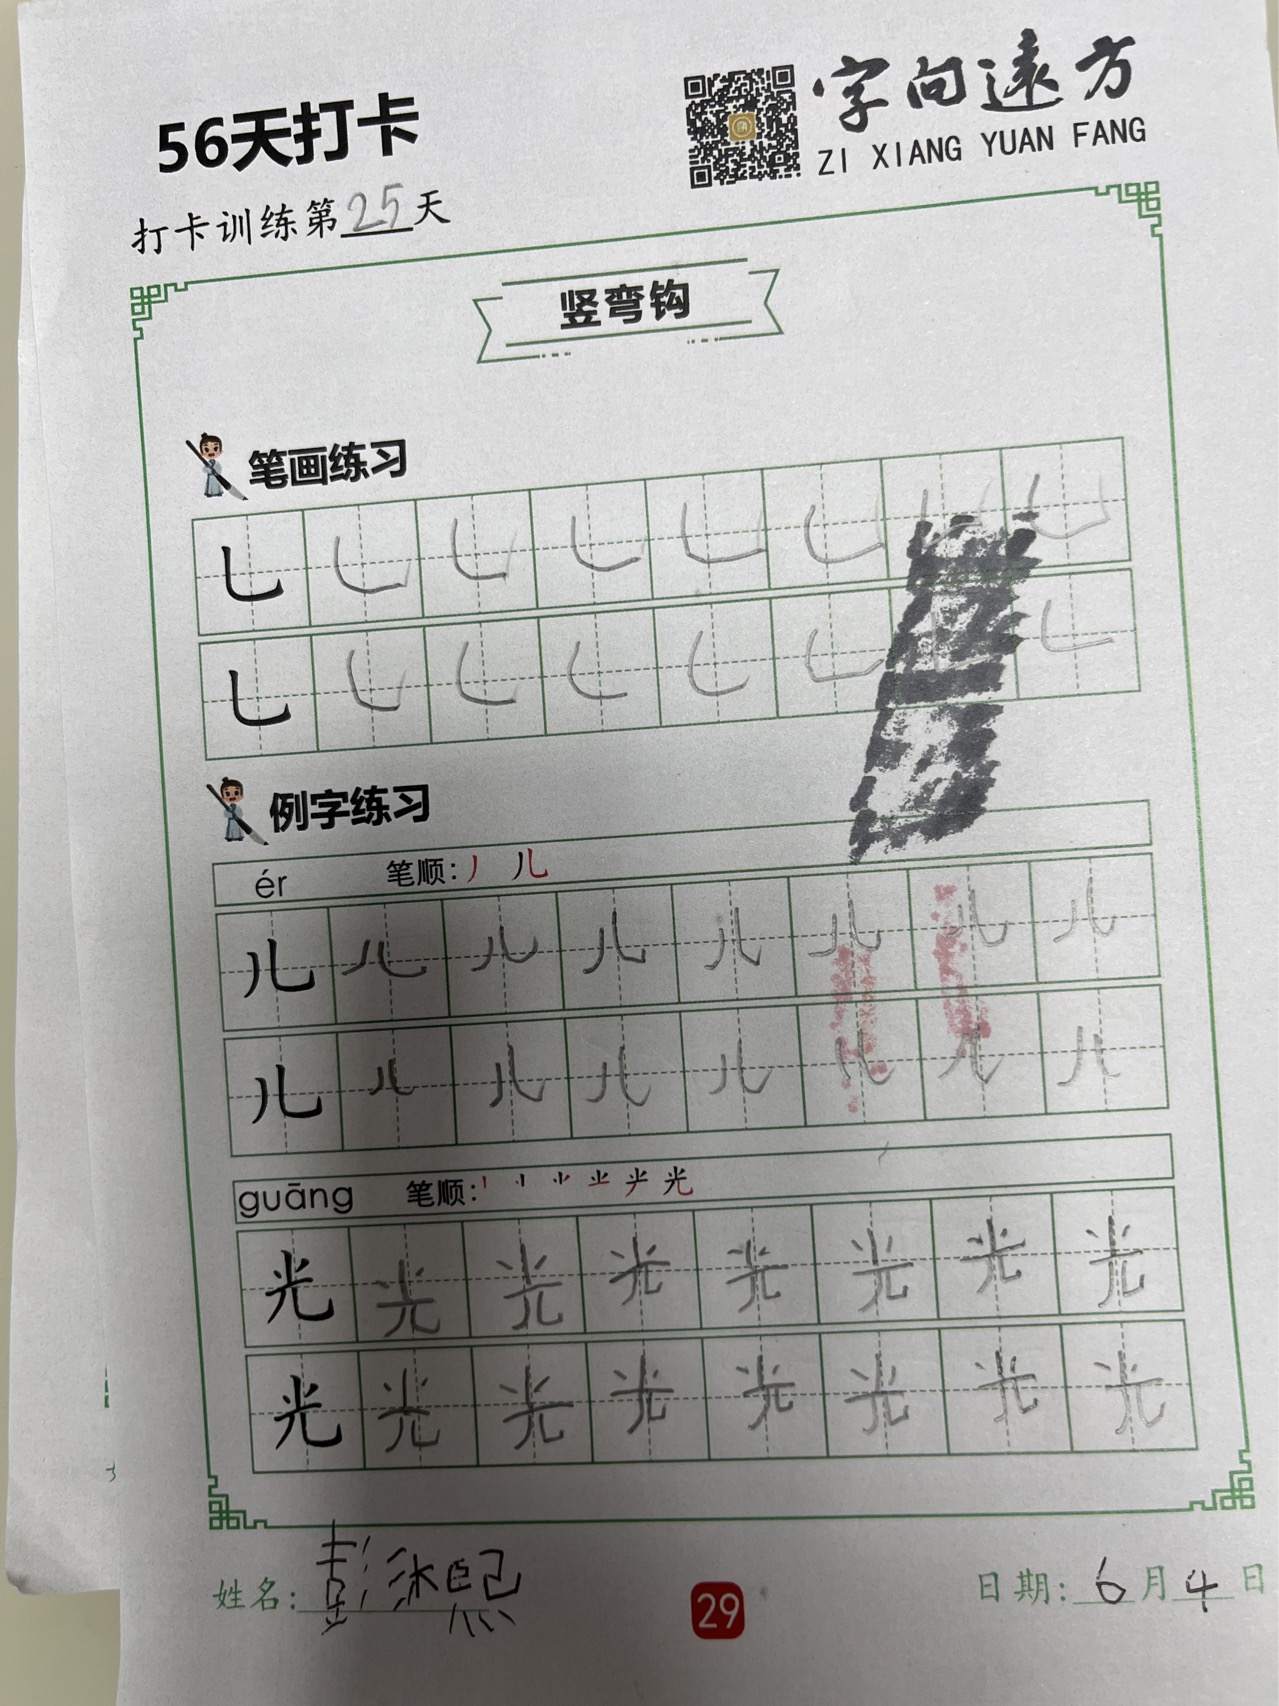 56天打卡
字向遠方
ZI XIANG YUAN FANG
打卡训练第25天
竖弯钩
笔画练习
乚乚乚乚乚乚乚乚
乚乚乚乚乚乚乚乚
例字练习
ér 笔顺:丿 儿
儿儿儿儿儿儿儿儿
儿儿儿儿儿儿儿儿
guāng 笔顺: 光
光光光光光光光光
光光光光光光光光
姓名:彭沐熙
29
日期:6月4日